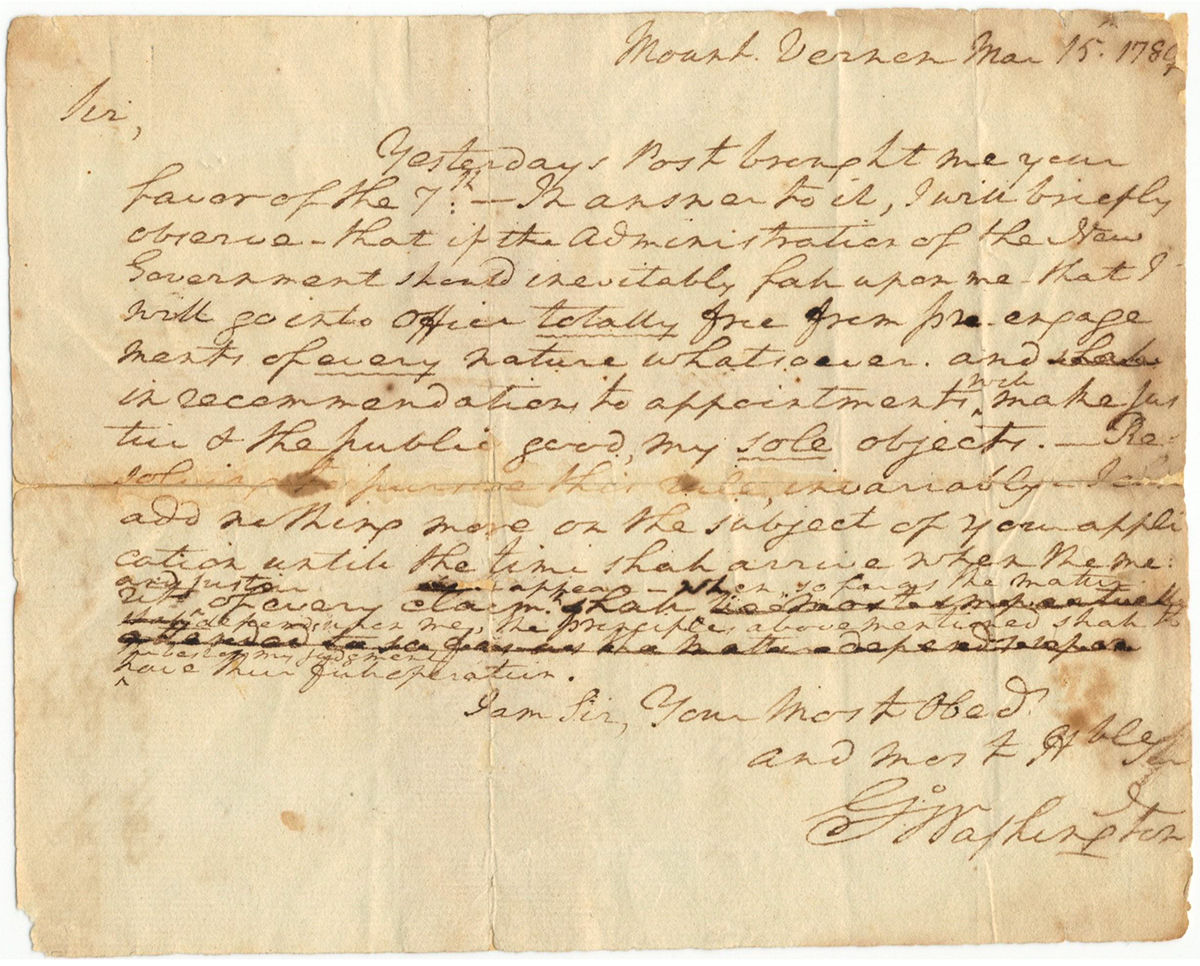 Mount Vernon Mar 15th. 1789
Sir,
Yesterdays Post brought me your
favor of the 7th. — In answer to it, I will briefly
observe – that if the Administration of the New
Government should inevitably fall upon me – that I
will go into office totally free from pre-engage
ments of every nature whatsoever. and shall
will
in recommendations to appointments make jus
tice & the public good, my sole objects. — Re-
solving to pursue this rule, invariably – I
add nothing more on the subject of your appli
cation until the time shall arrive when the me:
any justice appear – when so far as the matter
rits of every claim shall be most
depends upon me, the principles above mentioned shall to
attended to so far as the matter depends upon
the best of my judgment
have their full operation.
I am Sir, Your Most Obed.
and most Hble Ser
Go Washington